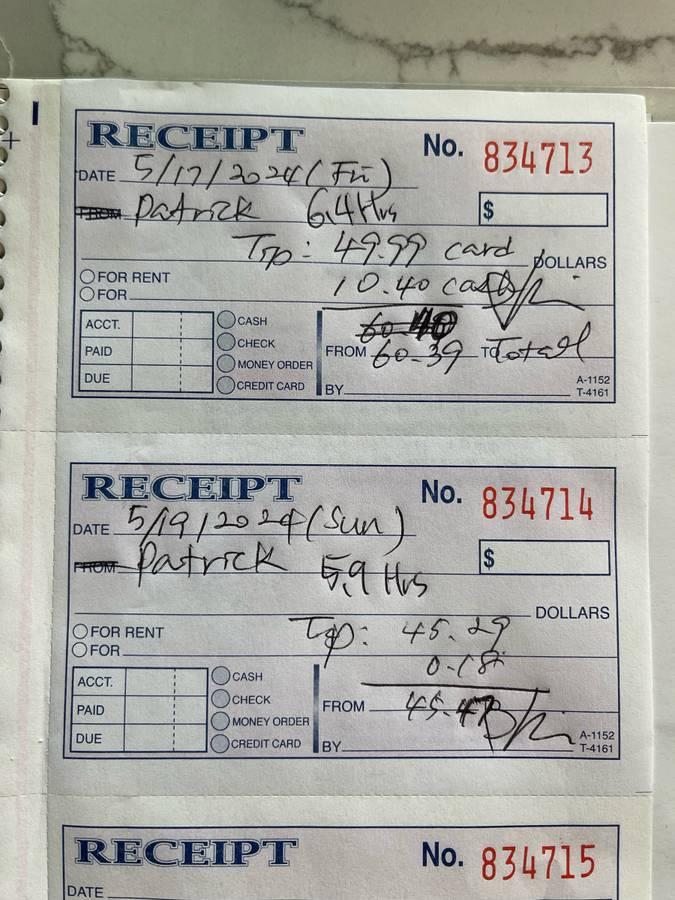 RECEIPT No. 834713
DATE 5/17/2024 (Fri)
FROM Patrick 6.4 Hrs $
Tip: 49.99 card DOLLARS
FOR RENT
FOR 10.40 cash
ACCT. CASH
PAID CHECK
DUE MONEY ORDER
CREDIT CARD
60.40
FROM 60.39 TO Total
BY
A-1152
T-4161
RECEIPT No. 834714
DATE 5/19/2024 (Sun)
FROM Patrick 5.9 Hrs $
DOLLARS
FOR RENT Tip: 45.29
FOR 0.18
ACCT. CASH
PAID CHECK
DUE MONEY ORDER
CREDIT CARD
FROM 45.47
BY
A-1152
T-4161
RECEIPT No. 834715
DATE